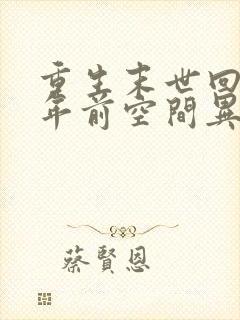 重生末世回
年前空間異
蔡賢恩